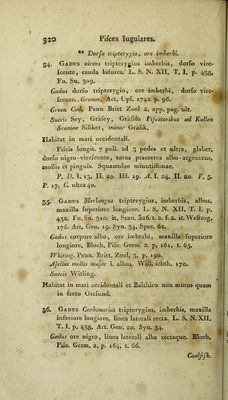 320 Pisces Jugulares.
** Dorso tripterygio, ore imberbi.
34. GADUS virens tripterygius imberbis, dorso vire-
scente, cauda bifurca. L. S. N. XII, T. I. p. 438.
Fn. Su. 309.
Gadus dorso tripterygio, ore imberbi, dorso vire-
scente. Gronov. Act. Ups. 1742. p. 96.
Green Cod. Penn Britt Zool. 2. app. pag. ult.
Suecis Sey, Gråsey, Gråsida Piscatoribus ad Kullen
Scaniae Silfiker, minor Gråfik.
Habitat in mari occidentali.
Piscis longit. 7 poll. ad 3 pedes et ultra, glaber,
dorso nigro-virescente, totus praeterea albo-argenteus,
mollis et pinguis. Squamulae minutissimae.
P. D. I. 13. II. 20. III. 19. A. I. 24. II. 20. V. 5.
P. 17. C. ultra 40.
35. GADUS Merlangus tripterygius, imberbis, albus,
maxilla superiore longiore. L. S. N. XII, T. I. p.
438. Fn. Su. 310. it. Scan. 326. t. 2. f. 2. it. Westrog.
176. Art. Gen. 19. Syn. 34. Spec. 62.
Gadus corpore albo, ore imberbi, maxilla superiore
longiore. Bloch, Pisc. Germ 2. p. 161. t. 65.
Whiting. Penn. Britt. Zool. 3. p. 190.
Asellus mollis major l. albus. Will. ichth. 170.
Suecis Witling.
Habitat in mari occidentali et Balthico non minus quam
in freto Oresund.
36. GADUS Carbonarius tripterygius, imberbis, maxilla
inferiore longiore, linea laterali recta. L. S. N. XII,
T. I. p. 438. Art. Gen. 20. Syn. 34.
Gadus ore nigro, linea laterali alba rectaque. Bloch,
Pisc. Germ. 2. p. 164. t. 66.
Coelfish.